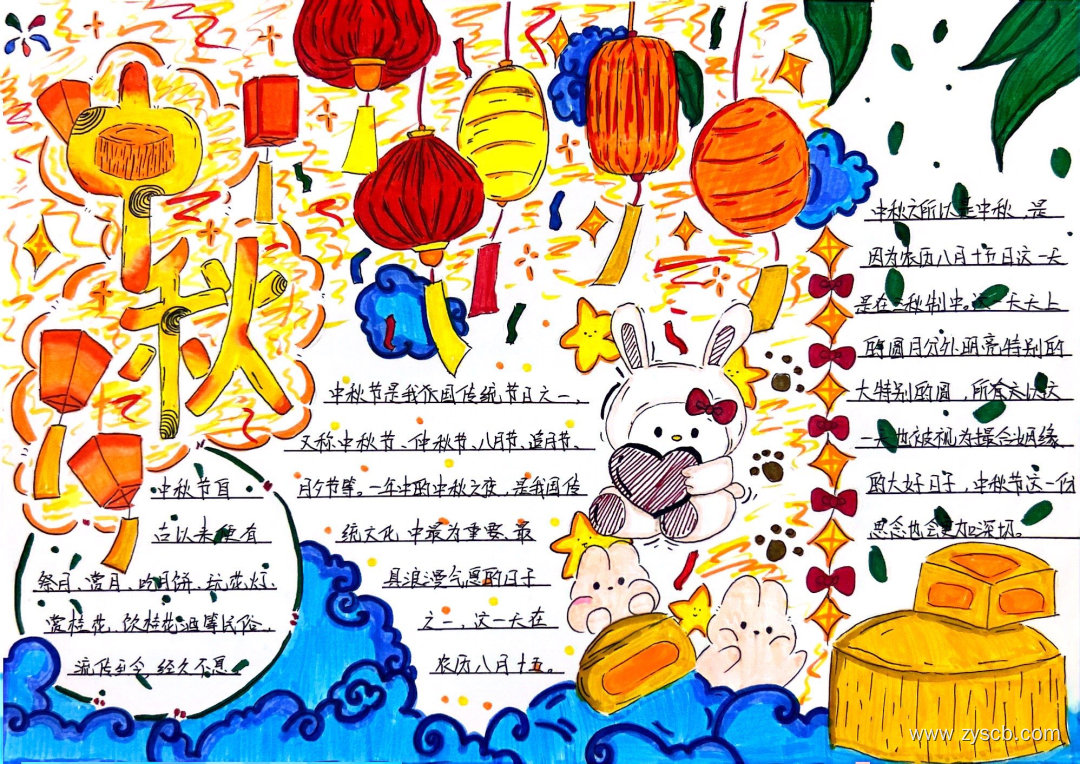 中秋
中秋节自
古以来便有
祭月、赏月、吃月饼、玩花灯、
赏桂花、饮桂花酒等民俗，
流传至今，经久不息。
中秋节是我国传统节日之一，
又称中秋节、仲秋节、八月节、追月节、
月夕节等。一年中的中秋之夜，是我国传
统文化中最为重要、最
具浪漫气息的日子
之一，这一天在
农历八月十五。
中秋之所以是中秋，是
因为农历八月十五日这一天
是在三秋制中。这一天天上
的圆月分外明亮特别的
大特别的圆，所有以这
一天也被视为撮合姻缘
的大好日子，中秋节这一份
思念也会更加深切。
www.zyscbl.com